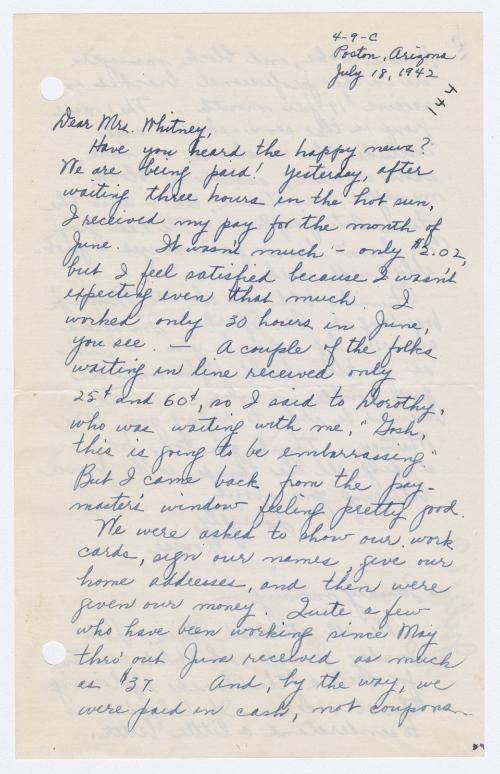 4-9-C
Poston, Arizona
July 18, 1942
144
Dear Mrs. Whitney,
Have you heard the happy news?
We are being paid! Yesterday, after
waiting three hours in the hot sun,
I received my pay for the month of
June. It wasn't much - only $2.02,
but I feel satisfied because I wasn't
expecting even that much. I
worked only 30 hours in June,
you see. — A couple of the folks
waiting in line received only
25¢ and 60¢, so I said to Dorothy,
who was waiting with me, "Gosh,
this is going to be embarrassing."
But I came back from the pay-
master's window feeling pretty good.
We were asked to show our work
cards, sign our names, give our
home addresses, and then were
given our money. Quite a few
who have been working since May
thro' out June received as much
as $37. And, by the way, we
were paid in cash, not coupons.